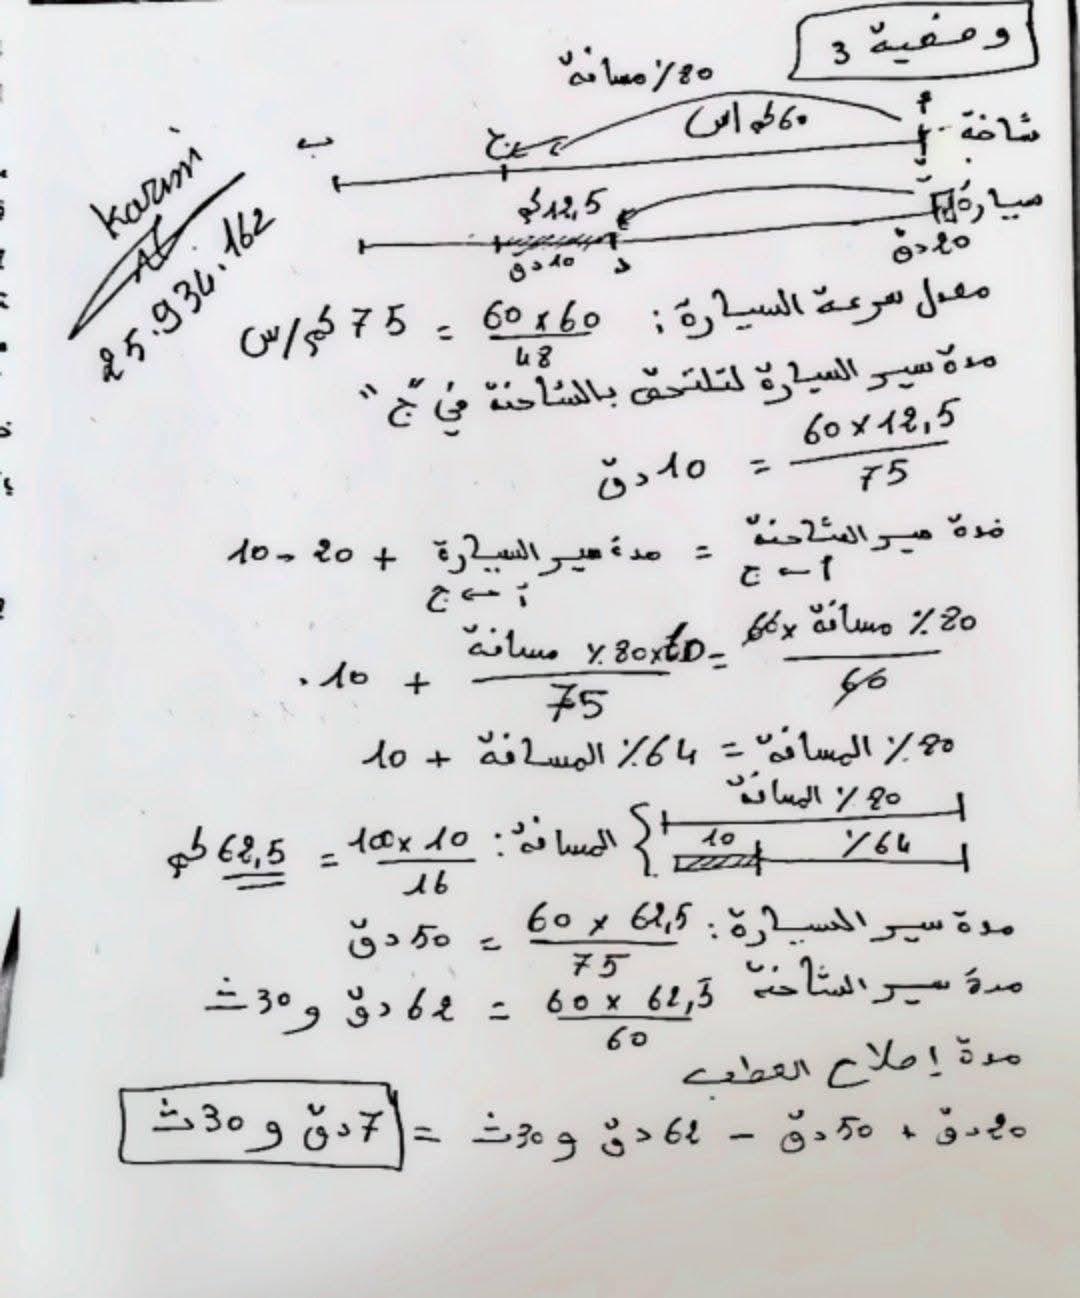 وضعية 3
80٪ مسافة
شاحنة أ 60كم/س ج ب
سيارة 12,5كم
20دق د 10دق
Karim
25.934.162
معدل سرعة السيارة: 60 × 60 / 48 = 75 كم/س
مدة سير السيارة لتلتحق بالشاحنة في "ج"
60 × 12,5 / 75 = 10 دق
مدة سير الشاحنة = مدة سير السيارة + 20 - 10
أ ← ج أ ← ج
80٪ مسافة × 60 / 60 = 60 × 80٪ مسافة / 75 + 10.
80٪ المسافة = 64٪ المسافة + 10
80٪ المسافة
64٪ 10 } المسافة: 10 × 100 / 16 = 62,5 كم
مدة سير السيارة: 62,5 × 60 / 75 = 50 دق
مدة سير الشاحنة 62,5 × 60 / 60 = 62 دق و 30ث
مدة إصلاح العطب
20دق + 50دق - 62دق و 30ث = 7دق و 30ث